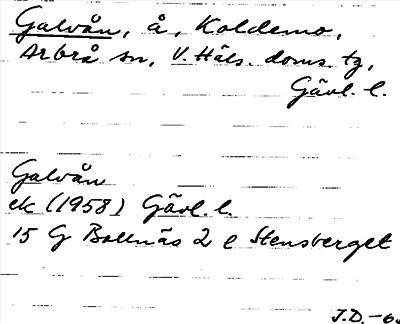 Galvån, å, Koldemo,
Arbrå sn, V. Häls. doms tg,
Gävl. l.
Galvån
ek (1958) Gävl. l.
15 G Bollnäs 2 e Stensberget
J.D. -6